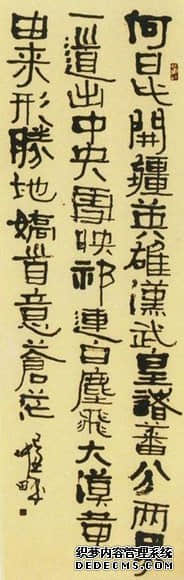 何日開疆英雄漢武皇諸蕃分兩界
一道出中央雪映祁連白塵飛大漠黃
由来形勝地矯首意蒼茫
织梦内容管理系统
DEDECMS.COM